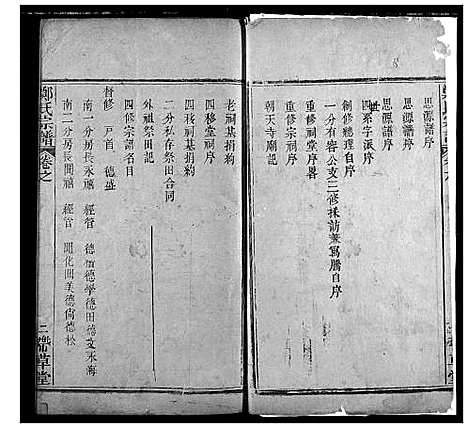 思源譜序
思源譜序
思源序
四系字派序
創修總理自序
一分有容公支二修採訪兼寫謄自序
重修祠堂序畧
重修祠序
朝天寺廟記
老祠基捐約
四移堂祠序
四移祠基捐約
二分私存祭田合同
外祖祭田記
四修宗譜名目
督修 戶首 德盛
南一分房長永禧 經管 德 德學德田德文永海
南二分房長開禧 經管 開化開美德尚德松
鄭氏宗譜 卷之
二 帶草堂